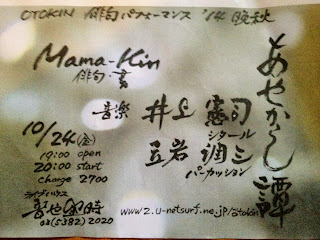 OTOKIN 俳句パフォーマンス '14 晩秋
あやかし譚
Mama-Kin
俳句・書
音楽 井上 憲司
シタール
立岩 潤三
パーカッション
10/24(金)
19:00 open
20:00 start
charge 2700
ライブハウス
音也会時
03(5382)2020
www2.u-netsurf.ne.jp/otokin